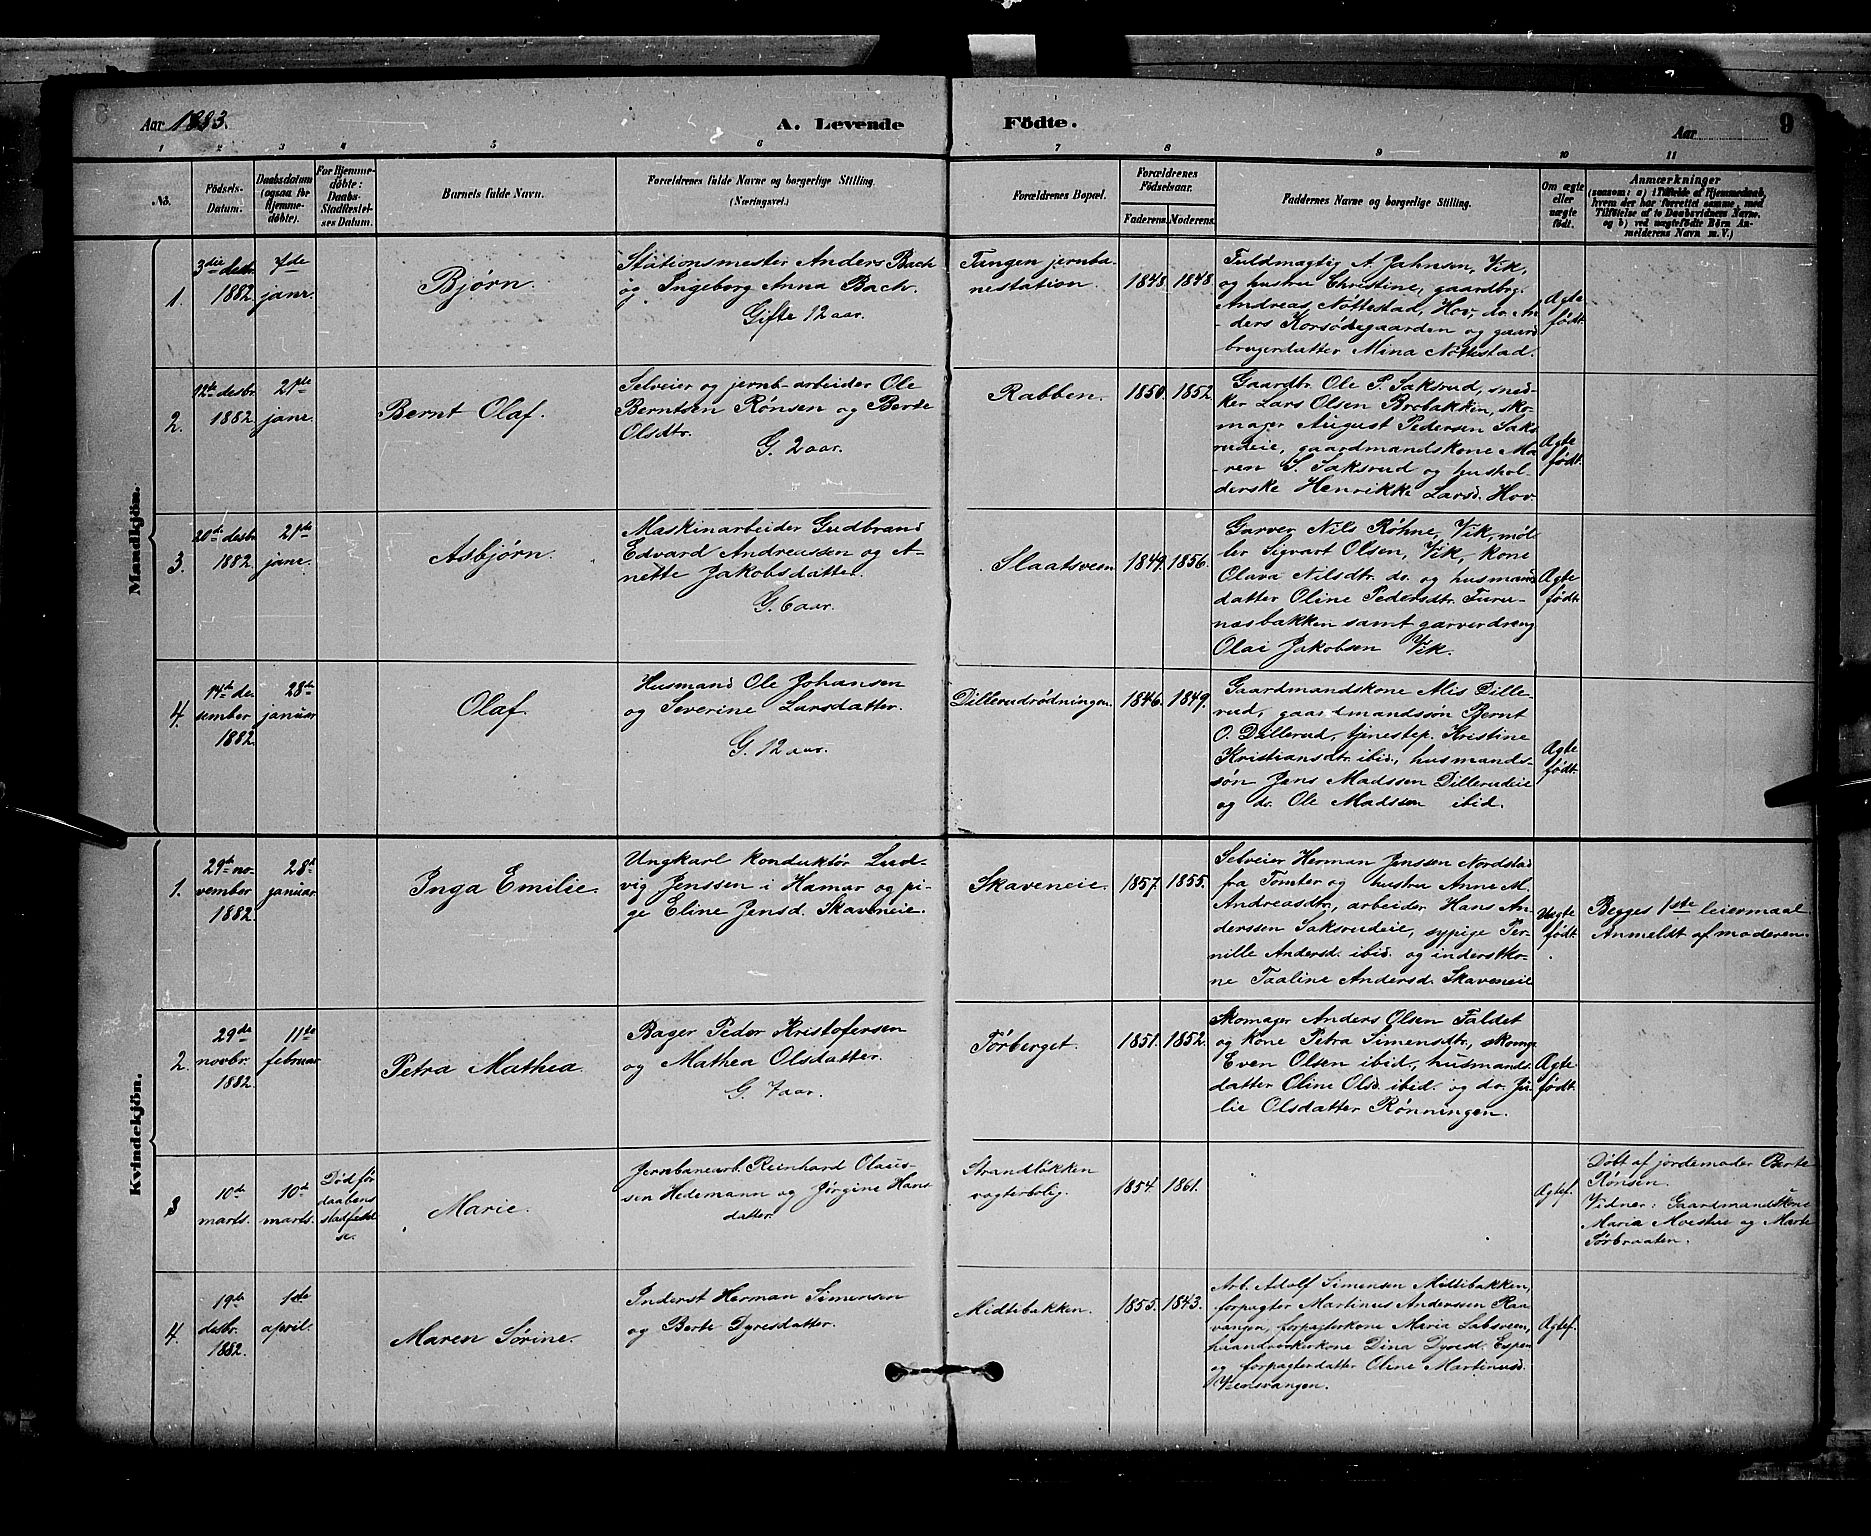 Aar 1883. A. Levende Födte. Aar 9
1 2 3 4 5 6 7 8 9 10 11
No.
Födsels-
Datum.
Daabsdatum
(ogsaa for
Hjemme-
döbte).
For Hjemme-
döbte:
Daabs-
Stadfæstel-
ses Datum.
Barnets fulde Navn.
Forældrenes fulde Navne og borgerlige Stilling.
(Næringsvei.)
Forældrenes Bopæl.
Forældrenes
Födselsaar.
Faderens. Moderens.
Faddernes Navne og borgerlige Stilling.
Om ægte
eller
uægte
födt.
Anmærkninger
(saasom: a) i Tilfælde af Hjemmedaab,
hvem der har forrettet samme, med
Tilföielse af to Daabsvidners Navne,
og b) ved uægtefödte Börn An-
melderens Navn m. V.)
Mandkjön.
1.
3die desbr.
1882.
7de
janr.
Bjørn.
Stationsmester Anders Bach
og Ingeborg Anna Bach.
Gifte 12 aar.
Tangen jernba-
nestation.
1848. 1848.
Fuldmægtig A. Jahnsen, Vik,
og hustru Christine, gaardbr.
Andreas Nøttestad, Hov, do. An-
ders Korsødegaarden og gaard-
brugerdatter Mina Nøttestad.
Ægte
født.
2.
12te desbr.
1882.
21de
janr.
Bernt Olaf.
Selveier og jernb-arbeider Ole
Berntsen Rønsen og Berte
Olsdtr.
G. 2 aar.
Rabben.
1850. 1852.
Gaardbr. Ole P. Saksrud, sned-
ker Lars Olsen Brobakken, sko-
mager August Pedersen Saks-
rudeie, gaardmandskone Ma-
ren S. Saksrud og hushol-
derske Henrikke Larsd. Hov
Ægte
født.
3.
20de desbr.
1882.
21de
janr.
Asbjørn.
Maskinarbeider Gudbrand
Edvard Andreassen og A-
nette Jakobsdatter.
G. 6 aar.
Slaatsveen
1849. 1856.
Garver Nils Røhne, Vik, møl-
ler Sigvart Olsen, Vik, kone
Olava Nilsdtr. do. og husmands
datter Oline Pedersdtr. Furu-
næsbakken samt garverdreng
Olai Jakobsen Vik.
Ægte
født.
4.
14de de-
sember
1882.
28de
januar
Olaf.
Husmand Ole Johansen
og Severine Larsdatter.
G. 12 aar.
Dillerudrødningen.
1846. 1849.
Gaardmandskone Mis Dille-
rud, gaardmandssøn Bernt
O. Dillerud, tjenestep. Kristine
Kristiansdtr. ibid., husmands-
søn Jens Madssen Dillerudeie
og do. Ole Madssen ibid.
Ægte
født.
Kvindekjön.
1.
29de no-
vember
1882.
28de
januar.
Inga Emilie.
Ungkarl konduktør Lud-
vig Jenssen i Hamar og pi-
ge Eline Jensd. Skaveneie.
Skaveneie.
1857. 1855.
Selveier Herman Jenssen Nordstad
fra Tomter og hustru Anne M.
Andreasdtr., arbeider Hans An-
derssen Saksrudeie, sypige Per-
nille Andersd. ibid. og inderstko-
ne Taaline Andersd. Skaveneie
Uægte
født.
Begges 1ste leiermaal.
Anmeldt af moderen.
2.
29de
novbr.
1882.
11te
februar.
Petra Mathea.
Bager Peder Kristofersen
og Mathea Olsdatter.
G. 7 aar.
Tørberget.
1851. 1852.
Skomager Anders Olsen Faldet
og kone Petra Simensdtr., skomg.
Even Olsen ibid., husmands-
datter Oline Olsd. ibid. og do. Ju-
lie Olsdatter Rønningen.
Ægte
født.
3
10de
marts.
10de
marts.
Død før
daabens
stadfæstel-
se.
Marie.
Jernbanearb. Reinhard Olaus-
sen Hedemann og Jørgine Hans
datter.
Strandløkken
vogterbolig.
1854. 1861.
Ægtef.
Døbt af jordemoder Berte
Rønsen.
Vidner: Gaardmandskone
Maria Moestue og Marte
Sørbraaten.
4.
19de
desbr.
1882.
1ste
april.
Maren Sørine.
Inderst Herman Simensen
og Berte Dyresdatter.
Midtibakken.
1855. 1843.
Arb. Adolf Simensen Midtibakken,
forpagter Martinus Anderssen Raa-
vangen, forpagterkone Maria Labsveen,
haandverkerkone Dina Dyresd. Espen
og forpagterdatter Oline Martinusd.
Veensvangen.
Ægtef.